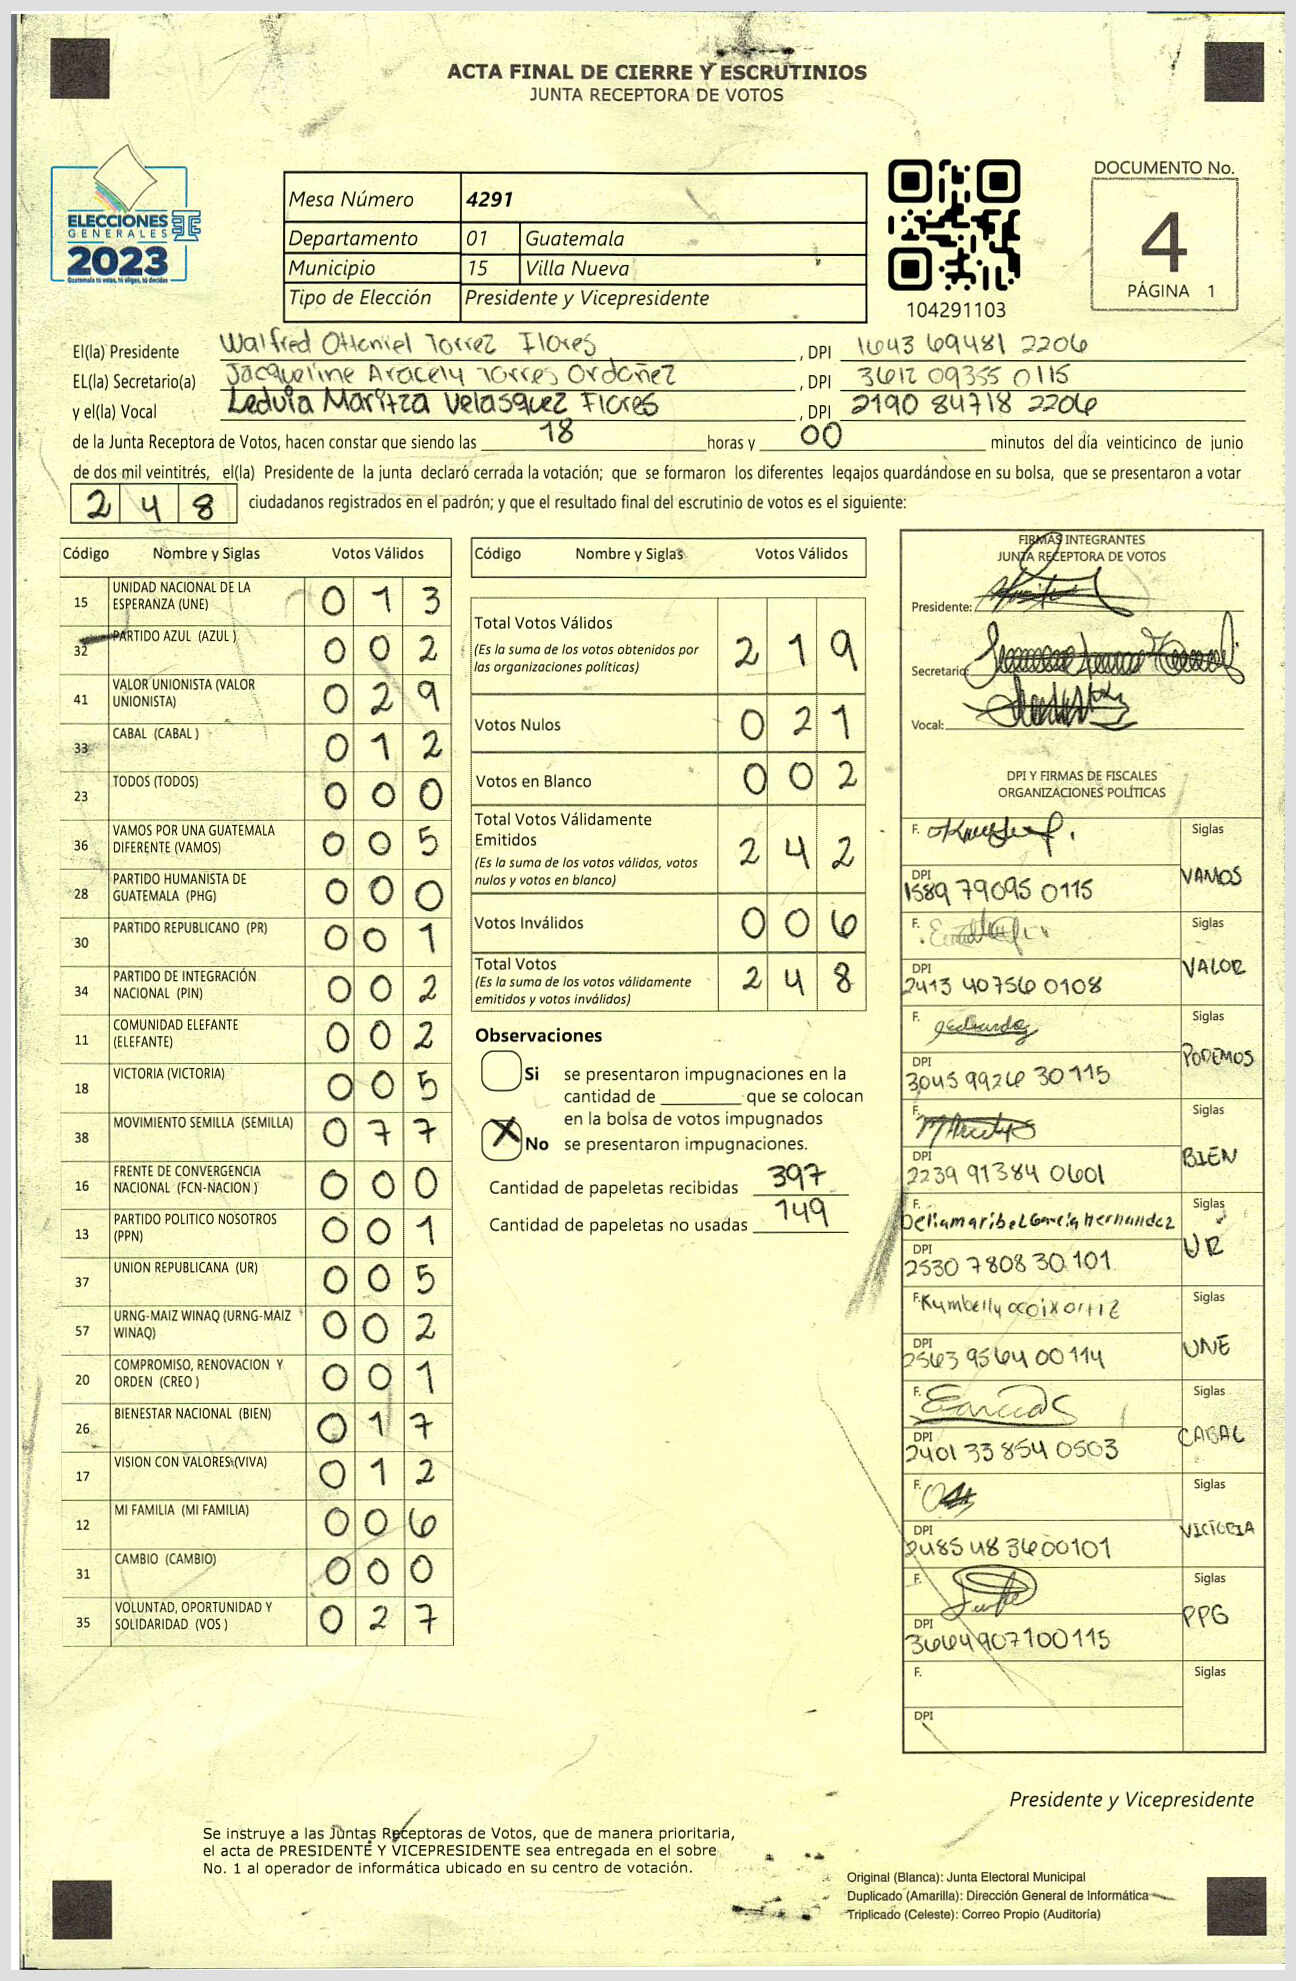 ACTA FINAL DE CIERRE Y ESCRUTINIOS
JUNTA RECEPTORA DE VOTOS
ELECCIONES
GENERALES
2023
Guatemala tú votas, tú eliges, tú decides
Mesa Número 4291
Departamento 01 Guatemala
Municipio 15 Villa Nueva
Tipo de Elección Presidente y Vicepresidente
104291103
DOCUMENTO No.
4
PÁGINA 1
El(la) Presidente Walfred Ottoniel Torrez Flores, DPI 1643 69481 2206
EL(la) Secretario(a) Jacqueline Aracely Torres Ordoñez, DPI 3612 09355 0115
y el(la) Vocal Leduia Maritza Velasquez Flores, DPI 2190 84718 2206
de la Junta Receptora de Votos, hacen constar que siendo las 18 horas y 00 minutos del día veinticinco de junio
de dos mil veintitrés, el(la) Presidente de la junta declaró cerrada la votación; que se formaron los diferentes legajos guardándose en su bolsa, que se presentaron a votar
248 ciudadanos registrados en el padrón; y que el resultado final del escrutinio de votos es el siguiente:
Código Nombre y Siglas Votos Válidos
15 UNIDAD NACIONAL DE LA ESPERANZA (UNE) 013
32 PARTIDO AZUL (AZUL ) 002
41 VALOR UNIONISTA (VALOR UNIONISTA) 029
33 CABAL (CABAL ) 012
23 TODOS (TODOS) 000
36 VAMOS POR UNA GUATEMALA DIFERENTE (VAMOS) 005
28 PARTIDO HUMANISTA DE GUATEMALA (PHG) 000
30 PARTIDO REPUBLICANO (PR) 001
34 PARTIDO DE INTEGRACIÓN NACIONAL (PIN) 002
11 COMUNIDAD ELEFANTE (ELEFANTE) 002
18 VICTORIA (VICTORIA) 005
38 MOVIMIENTO SEMILLA (SEMILLA) 077
16 FRENTE DE CONVERGENCIA NACIONAL (FCN-NACION ) 000
13 PARTIDO POLITICO NOSOTROS (PPN) 001
37 UNION REPUBLICANA (UR) 005
57 URNG-MAIZ WINAQ (URNG-MAIZ WINAQ) 002
20 COMPROMISO, RENOVACION Y ORDEN (CREO ) 001
26 BIENESTAR NACIONAL (BIEN) 017
17 VISION CON VALORES (VIVA) 012
12 MI FAMILIA (MI FAMILIA) 006
31 CAMBIO (CAMBIO) 000
35 VOLUNTAD, OPORTUNIDAD Y SOLIDARIDAD (VOS ) 027
Código Nombre y Siglas Votos Válidos
Total Votos Válidos 219
(Es la suma de los votos obtenidos por
las organizaciones políticas)
Votos Nulos 021
Votos en Blanco 002
Total Votos Válidamente
Emitidos 242
(Es la suma de los votos válidos, votos
nulos y votos en blanco)
Votos Inválidos 006
Total Votos 248
(Es la suma de los votos válidamente
emitidos y votos inválidos)
Observaciones
Si se presentaron impugnaciones en la
cantidad de ________ que se colocan
en la bolsa de votos impugnados
X No se presentaron impugnaciones.
Cantidad de papeletas recibidas 397
Cantidad de papeletas no usadas 149
FIRMAS INTEGRANTES
JUNTA RECEPTORA DE VOTOS
Presidente:
Secretario:
Vocal:
DPI Y FIRMAS DE FISCALES
ORGANIZACIONES POLÍTICAS
F. Siglas
DPI 1589 79095 0115 VAMOS
F. Siglas
DPI 2413 40756 0108 VALOR
F. Siglas
DPI 3045 9926 30115 PODEMOS
F. Siglas
DPI 2239 91384 0601 BIEN
F. Deliamaribel García Hernandez Siglas
DPI 2530 7808 30101 UR
F. Kymbelly ocoix ortiz Siglas
DPI 2563 9564 00114 UNE
F. Siglas
DPI 2401 33 854 0503 CABAL
F. Siglas
DPI 2485 48 3600101 VICTORIA
F. Siglas
DPI 3664907100115 PPG
F. Siglas
DPI
Presidente y Vicepresidente
Se instruye a las Juntas Receptoras de Votos, que de manera prioritaria,
el acta de PRESIDENTE Y VICEPRESIDENTE sea entregada en el sobre
No. 1 al operador de informática ubicado en su centro de votación.
Original (Blanca): Junta Electoral Municipal
Duplicado (Amarilla): Dirección General de Informática
Triplicado (Celeste): Correo Propio (Auditoría)